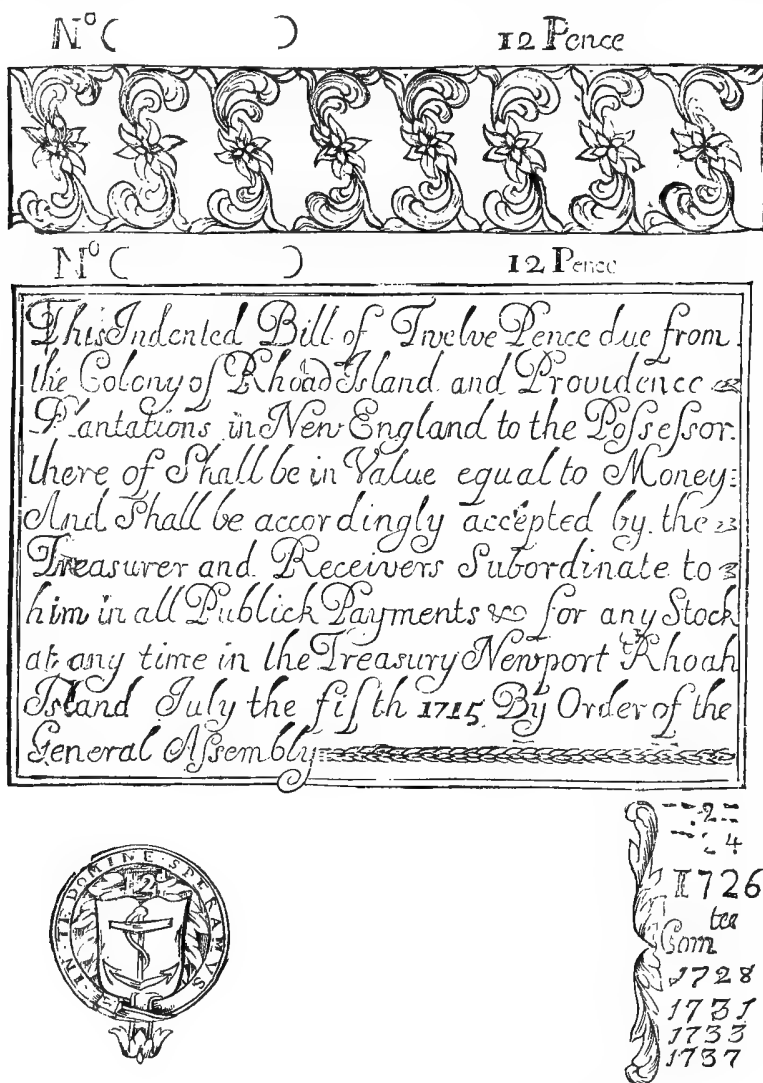 Nº ( ) 12 Pence
Nº ( ) 12 Pence
This Indented Bill of Twelve Pence due from
the Colony of Rhoad Island and Providence
Plantations in New England to the Poſseſsor
there of Shall be in Value equal to Money:
And Shall be accordingly accepted by the
Treasurer and Receivers Subordinate to
him in all Publick Payments & for any Stock
at any time in the Treasury Newport Rhoah
Island July the fifth 1715 By Order of the
General Aſsembly
IN·TE·DOMINE·SPERAMVS
12
2
4
1726
Com tee
1728
1731
1733
1737